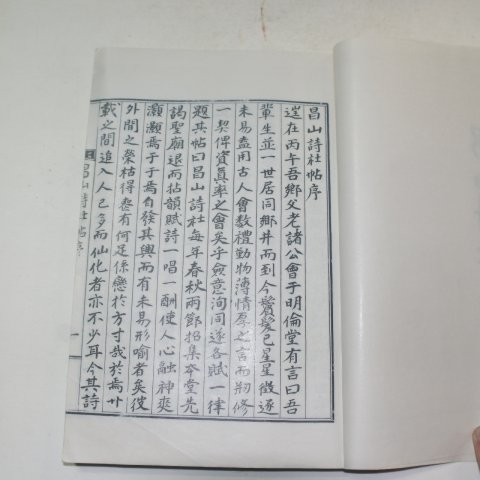 昌山詩社帖序
違在丙午吾鄉父老諸公會于明倫堂有言曰吾
輩生並一世居同鄉井而到今鬢髮已星星徵逐
未易盍用古人會數禮勤物薄情厚之言而刱修
一契俾資真率之會矣乎僉意洵同遂各賦一律
題其帖曰昌山詩社每年春秋兩節招集本堂先
謁聖廟退而拈韻賦詩一唱一酬使人心融神爽
灝灝焉于于焉自發其興而有未易形喻者矣彼
外間之榮枯得喪有何足係戀於方寸哉於焉卄
載之間追入人已多而仙化者亦不少耳今其詩
昌山詩社帖序
一